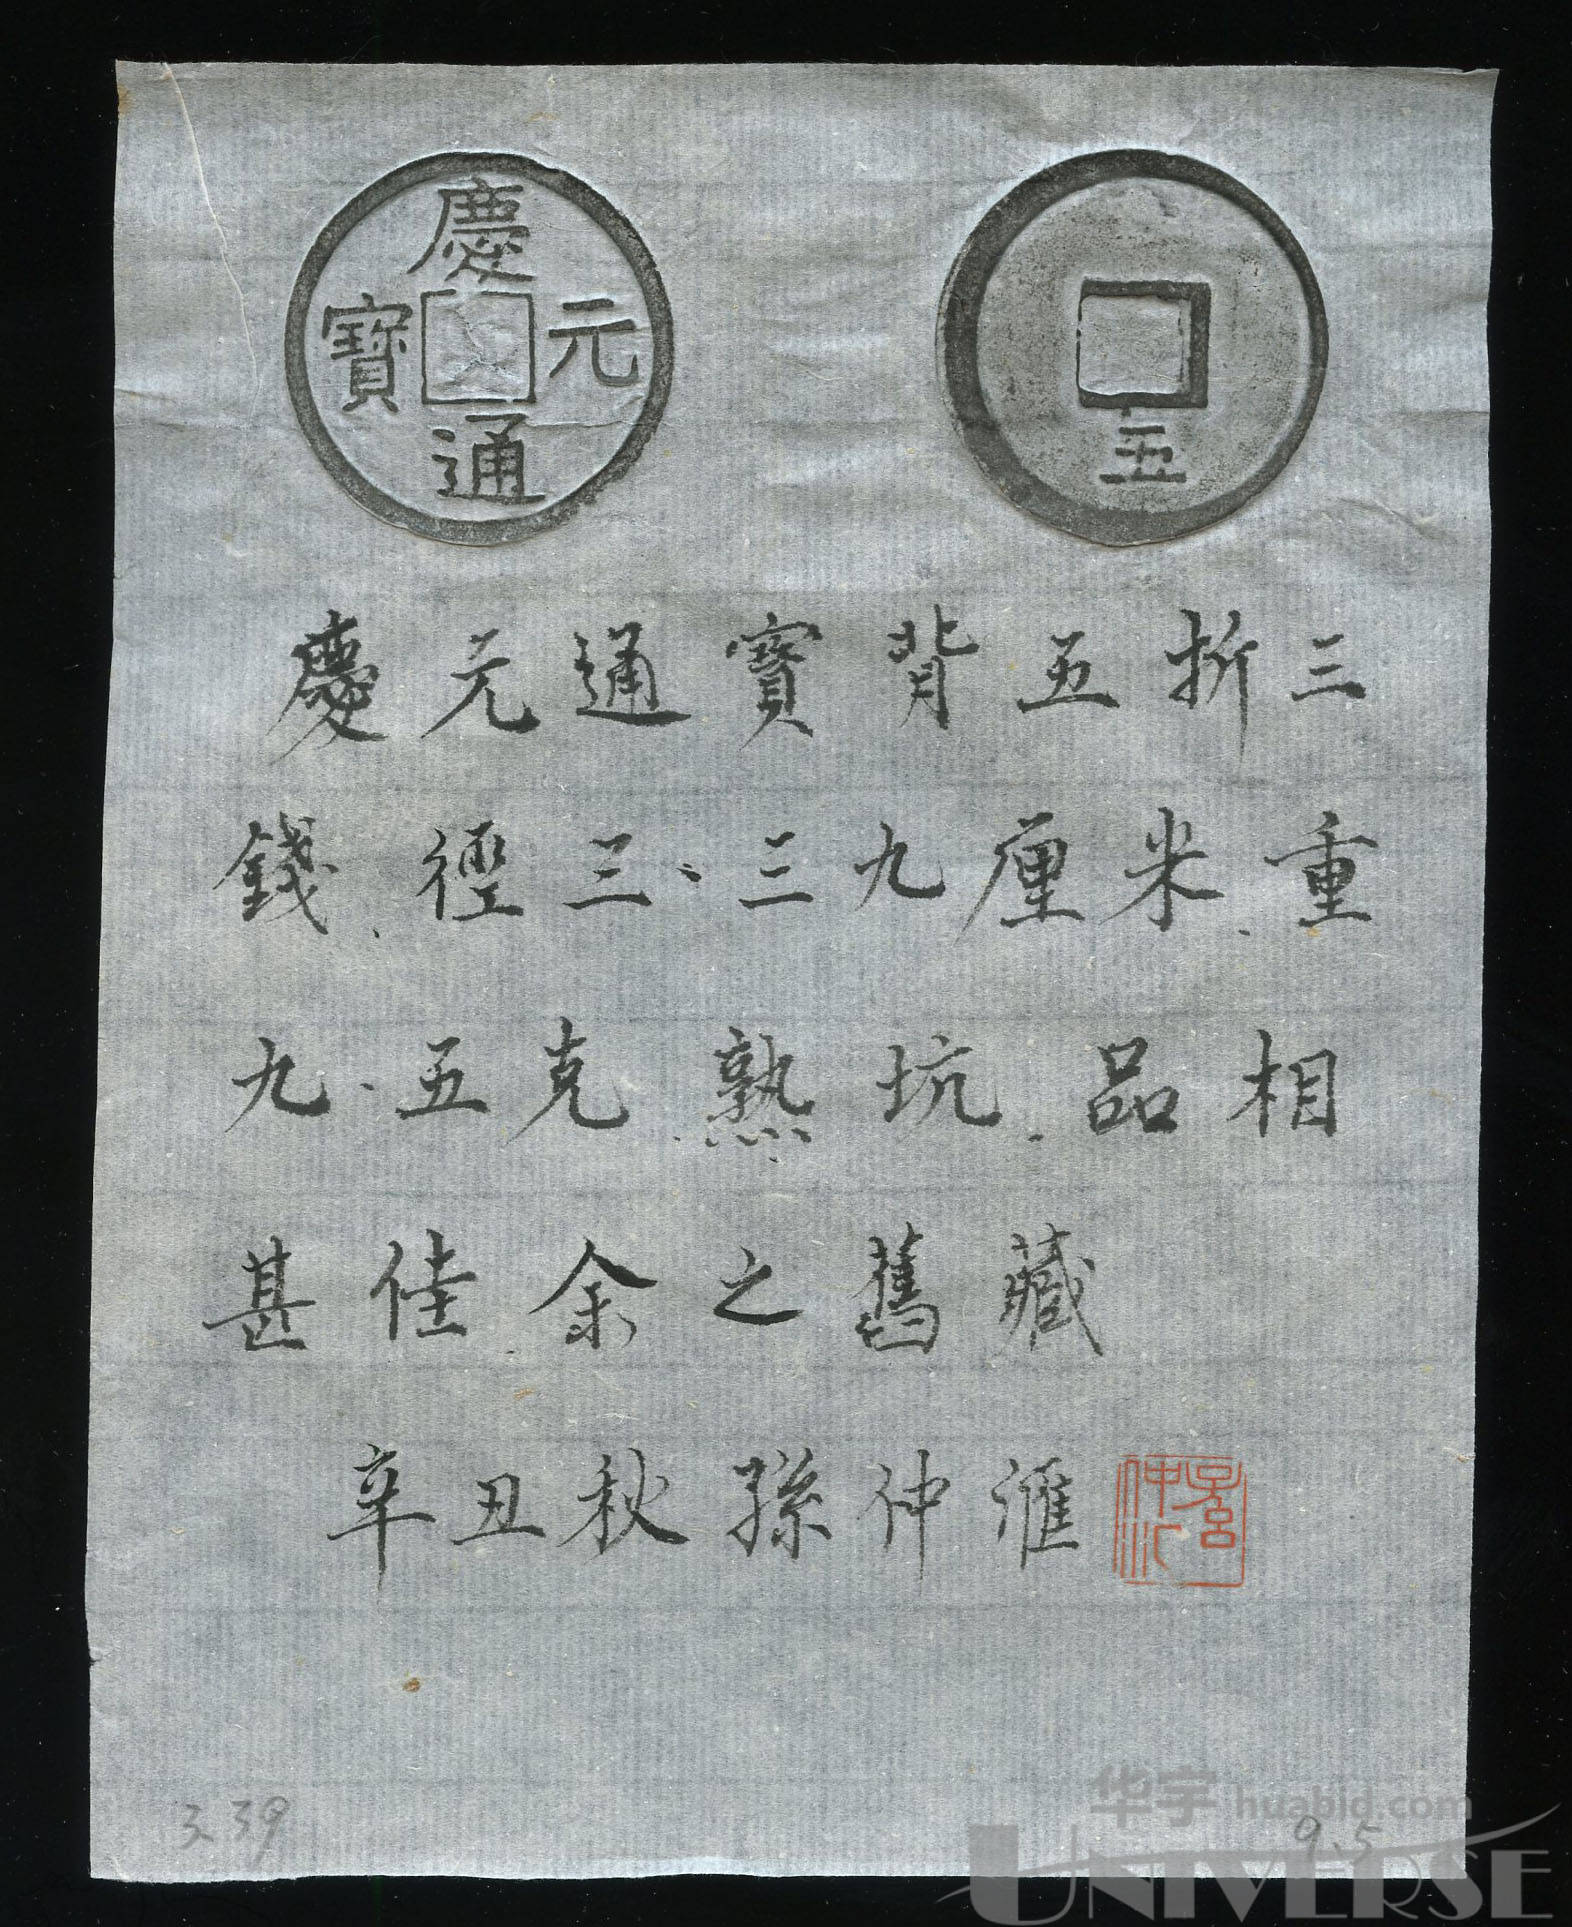 慶元通寶
五
慶元通寶背五折三
錢、徑三、三九厘米、重
九、五克、熟坑、品相
甚佳、余之舊藏
辛丑秋孫仲滙
孫仲匯
3.39
9.5
华宇 huabid.com
UNIVERSE